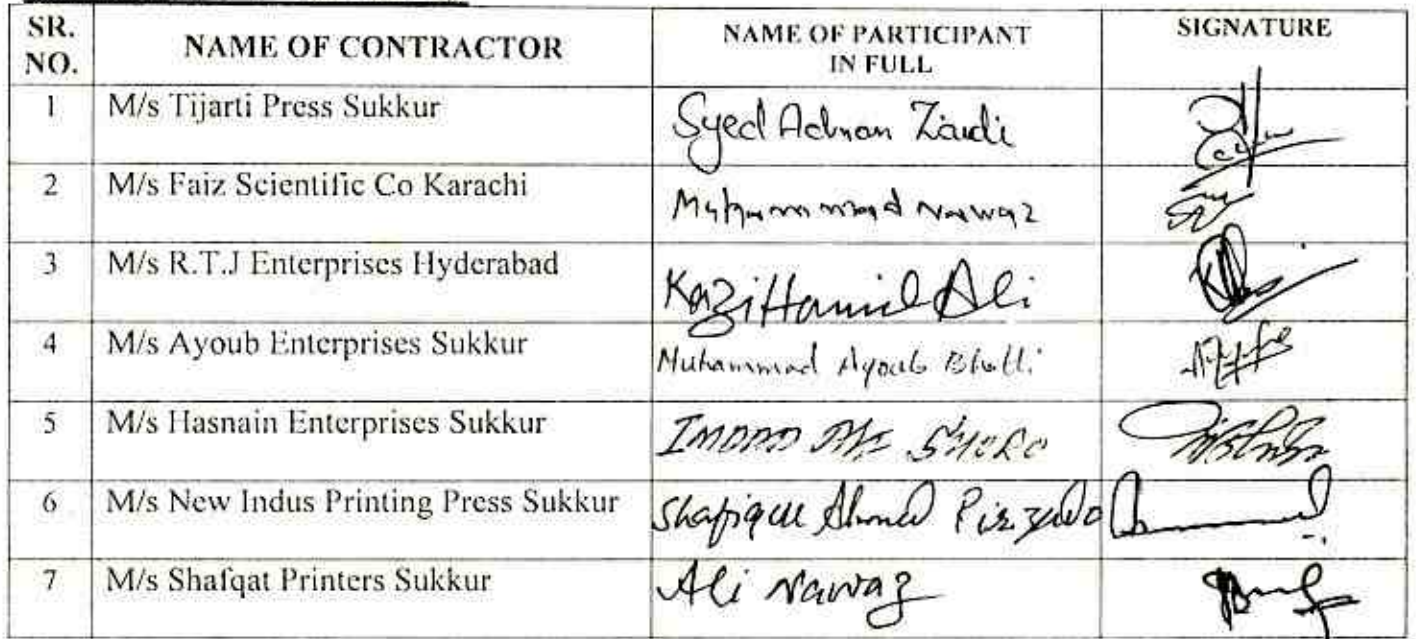 SR. NO. NAME OF CONTRACTOR NAME OF PARTICIPANT IN FULL SIGNATURE
1 M/s Tijarti Press Sukkur Syed Adnan Zaidi
2 M/s Faiz Scientific Co Karachi Muhammad Nawaz
3 M/s R.T.J Enterprises Hyderabad Kazi Hamid Ali
4 M/s Ayoub Enterprises Sukkur Muhammad Ayoub Bhatti
5 M/s Hasnain Enterprises Sukkur
6 M/s New Indus Printing Press Sukkur Shafique Ahmed Pirzado
7 M/s Shafqat Printers Sukkur Ali Nawaz